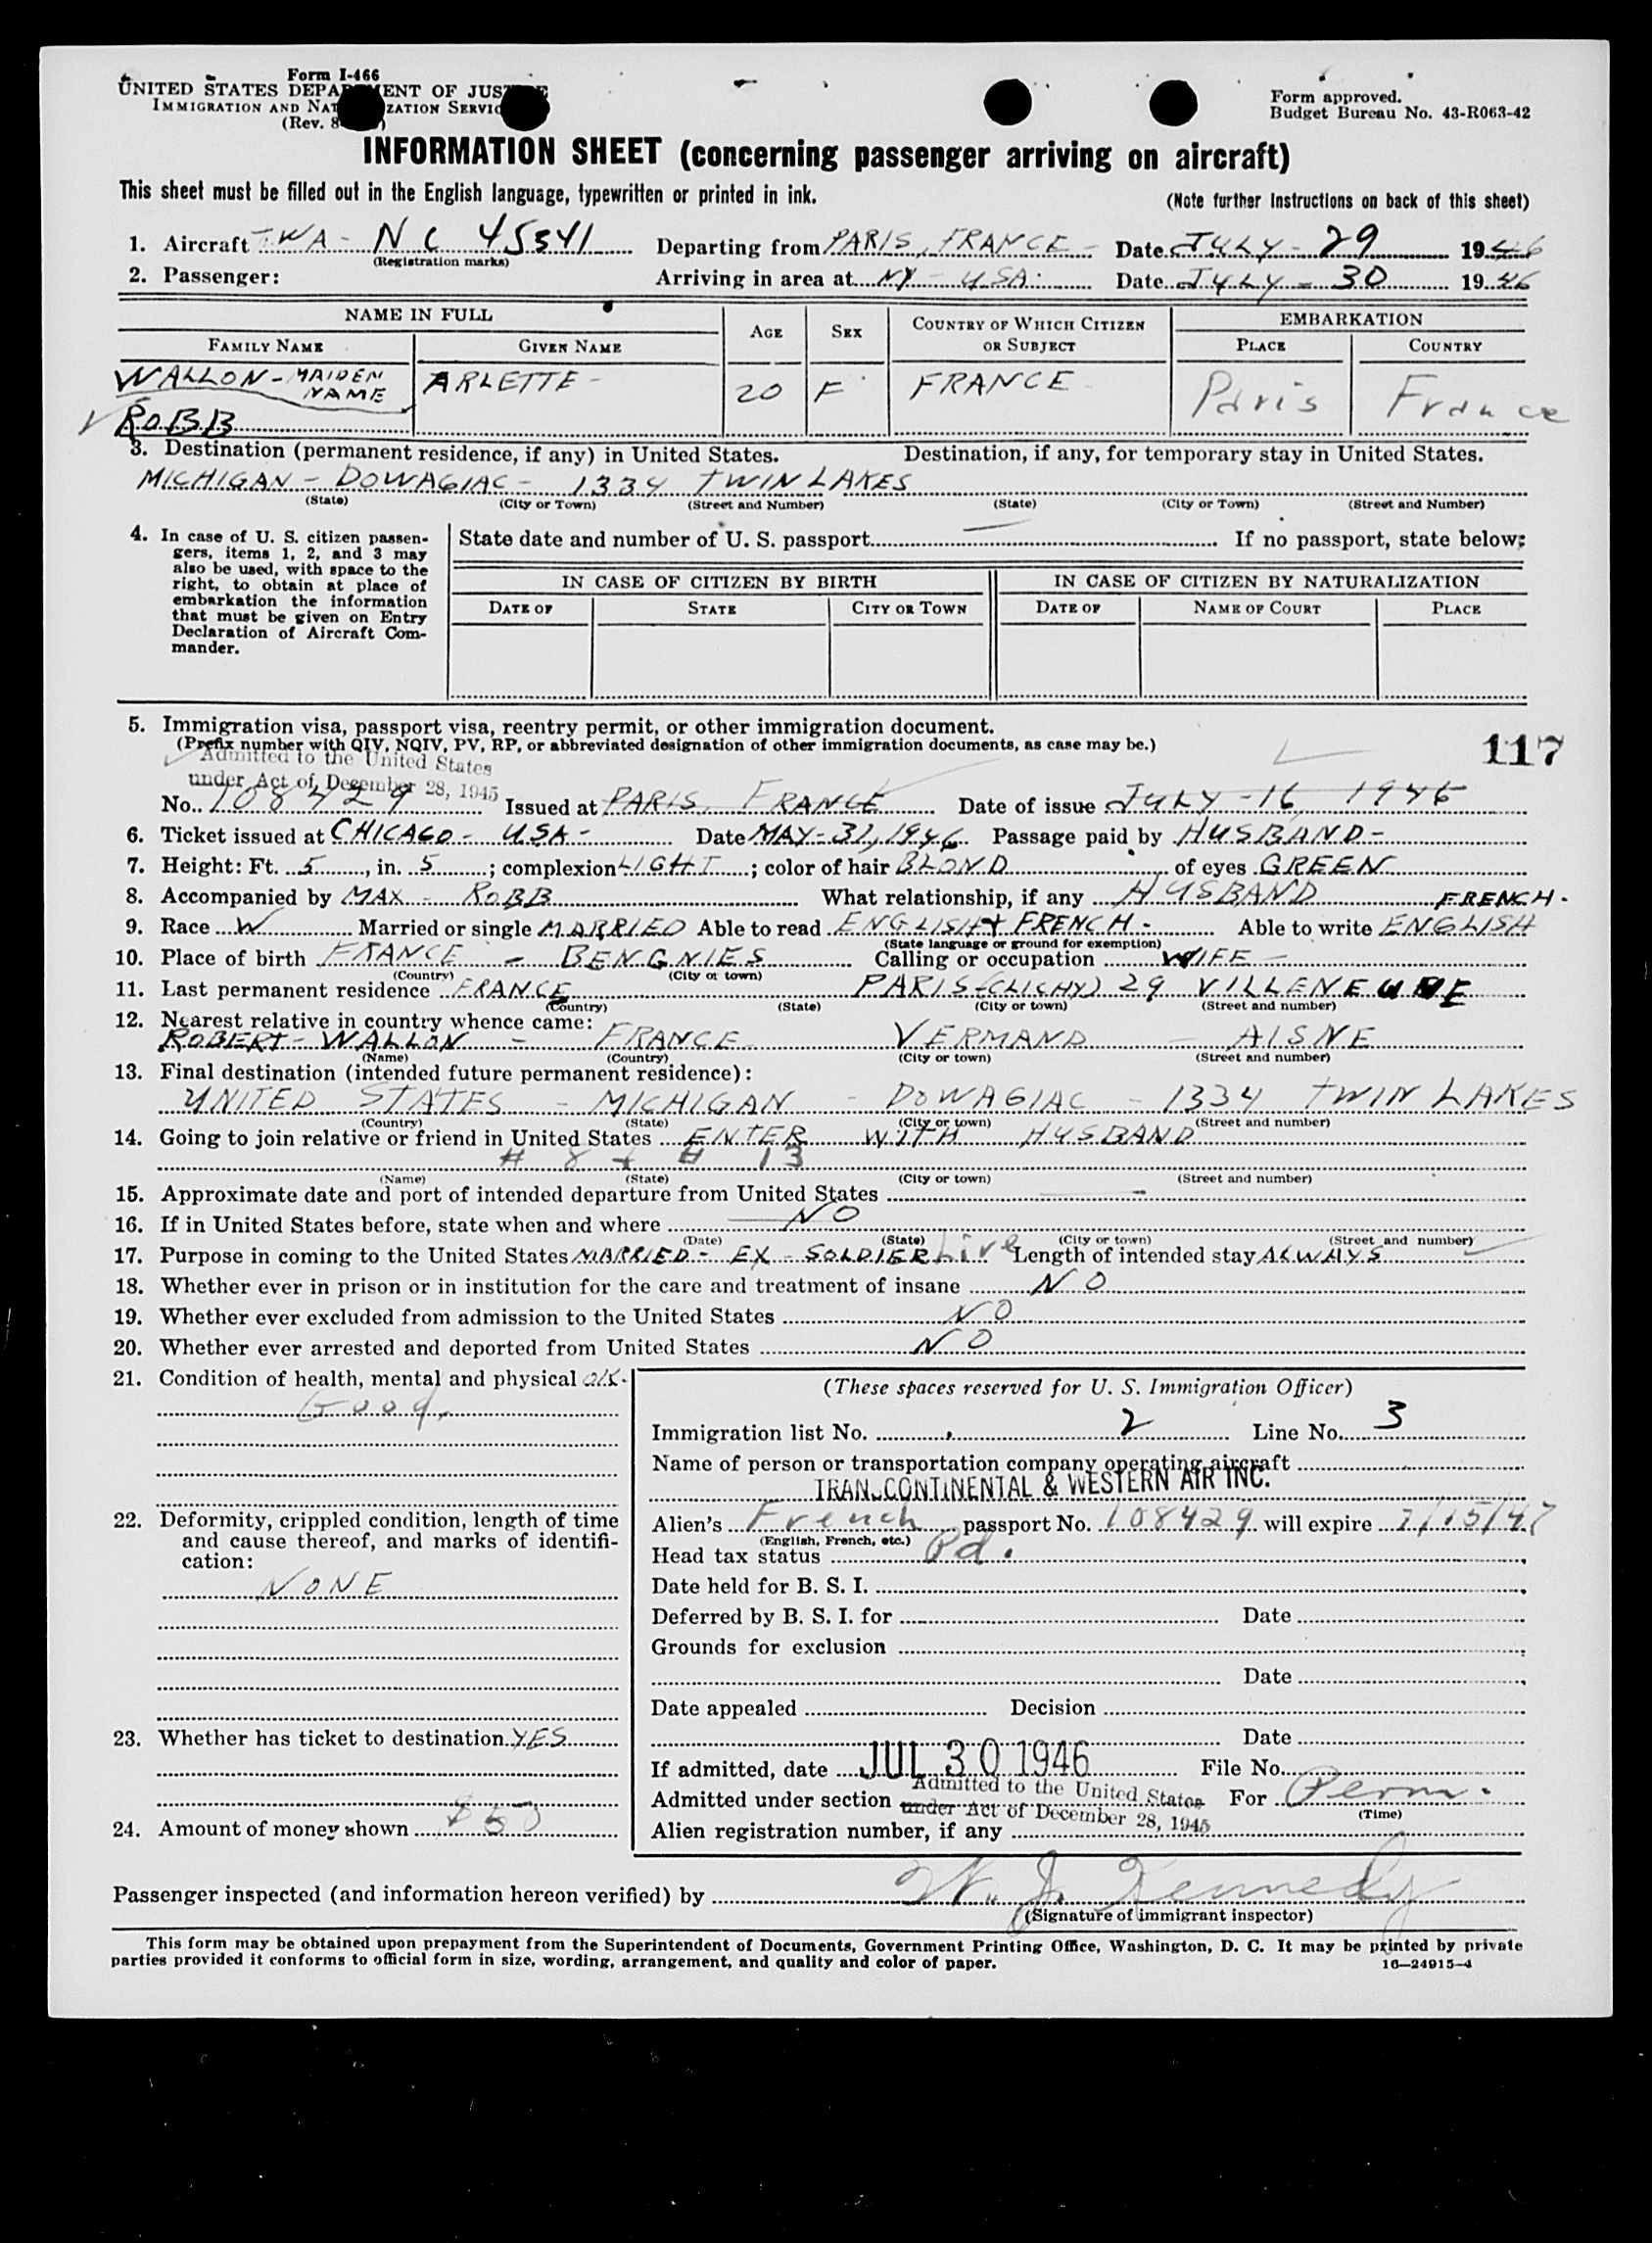 Form I-466
UNITED STATES DEPARTMENT OF JUSTICE
IMMIGRATION AND NATURALIZATION SERVICE
(Rev. 8
Form approved.
Budget Bureau No. 43-R063-42
INFORMATION SHEET (concerning passenger arriving on aircraft)
This sheet must be filled out in the English language, typewritten or printed in ink.
(Note further Instructions on back of this sheet)
1. Aircraft TWA - NC 45341 Departing from PARIS, FRANCE - Date JULY - 29 1946
(Registration marks)
2. Passenger: Arriving in area at NY - USA. Date JULY - 30 1946
NAME IN FULL AGE SEX COUNTRY OF WHICH CITIZEN OR SUBJECT EMBARKATION
FAMILY NAME GIVEN NAME PLACE COUNTRY
WALLON - MAIDEN NAME ARLETTE - 20 F FRANCE - Paris France
ROBB
3. Destination (permanent residence, if any) in United States. Destination, if any, for temporary stay in United States.
MICHIGAN - DOWAGIAC - 1334 TWIN LAKES
(State) (City or Town) (Street and Number) (State) (City or Town) (Street and Number)
4. In case of U. S. citizen passengers, items 1, 2, and 3 may also be used, with space to the right, to obtain at place of embarkation the information that must be given on Entry Declaration of Aircraft Commander.
State date and number of U. S. passport — If no passport, state below:
IN CASE OF CITIZEN BY BIRTH IN CASE OF CITIZEN BY NATURALIZATION
DATE OF STATE CITY OR TOWN DATE OF NAME OF COURT PLACE
5. Immigration visa, passport visa, reentry permit, or other immigration document.
(Prefix number with QIV, NQIV, PV, RP, or abbreviated designation of other immigration documents, as case may be.)
117
Admitted to the United States
under Act of December 28, 1945
No. 108429 Issued at PARIS, FRANCE Date of issue JULY - 16 1946
6. Ticket issued at CHICAGO - USA - Date MAY - 31, 1946 Passage paid by HUSBAND -
7. Height: Ft. 5, in. 5; complexion LIGHT; color of hair BLOND of eyes GREEN
8. Accompanied by MAX - ROBB What relationship, if any HUSBAND
FRENCH -
9. Race W Married or single MARRIED Able to read ENGLISH & FRENCH - Able to write ENGLISH
(State language or ground for exemption)
10. Place of birth FRANCE - BENGNIES Calling or occupation WIFE -
(Country) (City or town)
11. Last permanent residence FRANCE PARIS-(CLICHY) 29 VILLENEUVE
(Country) (State) (City or town) (Street and number)
12. Nearest relative in country whence came:
ROBERT - WALLON - FRANCE VERMAND - AISNE
(Name) (Country) (City or town) (Street and number)
13. Final destination (intended future permanent residence):
UNITED STATES - MICHIGAN - DOWAGIAC - 1334 TWIN LAKES
(Country) (State) (City or town) (Street and number)
14. Going to join relative or friend in United States ENTER WITH HUSBAND
# 8 + # 13
(Name) (State) (City or town) (Street and number)
15. Approximate date and port of intended departure from United States —
16. If in United States before, state when and where NO
(Date) (State) (City or town) (Street and number)
17. Purpose in coming to the United States MARRIED - EX - SOLDIER Live Length of intended stay ALWAYS
18. Whether ever in prison or in institution for the care and treatment of insane NO
19. Whether ever excluded from admission to the United States NO
20. Whether ever arrested and deported from United States NO
21. Condition of health, mental and physical O.K.
Good.
22. Deformity, crippled condition, length of time and cause thereof, and marks of identification:
NONE
23. Whether has ticket to destination YES
24. Amount of money shown $50
(These spaces reserved for U. S. Immigration Officer)
Immigration list No. 2 Line No. 3
Name of person or transportation company operating aircraft
TRANSCONTINENTAL & WESTERN AIR INC.
Alien's French passport No. 108429 will expire 7/15/47
(English, French, etc.)
Head tax status Pd.
Date held for B. S. I.
Deferred by B. S. I. for Date
Grounds for exclusion
Date
Date appealed Decision
Date
If admitted, date JUL 30 1946 File No.
Admitted under section Admitted to the United States under Act of December 28, 1945 For Perm.
(Time)
Alien registration number, if any
Passenger inspected (and information hereon verified) by W. J. Kennedy
(Signature of immigrant inspector)
This form may be obtained upon prepayment from the Superintendent of Documents, Government Printing Office, Washington, D. C. It may be printed by private
parties provided it conforms to official form in size, wording, arrangement, and quality and color of paper.
16—24915-4